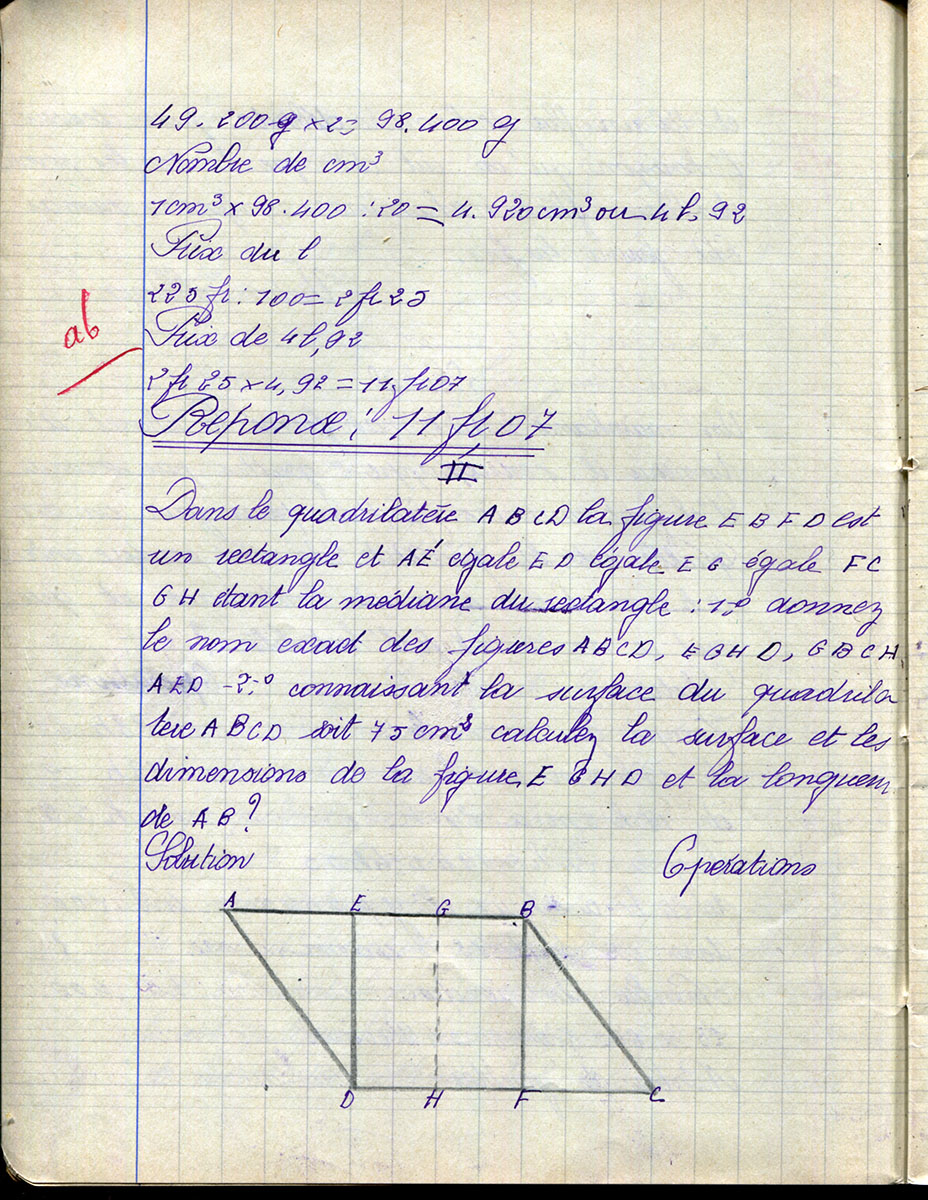 49.200g × 2 = 98.400 g
Nombre de cm³
1cm³ × 98.400 : 20 = 4.920cm³ ou 4l,92
Prix du l
225 fr : 100 = 2 fr 25
ab
Prix de 4l,92
2 fr 25 × 4,92 = 11, fr 07
Réponse : 11 fr,07
II
Dans le quadrilatère A B C D la figure E B F D est
un rectangle et AE égale E D égale E G égale F C
G H étant la médiane du rectangle : 1,° donnez
le nom exact des figures A B C D, E G H D, G B C H
A E D - 2,° connaissant la surface du quadrila
tère A B C D soit 75 cm² calculez la surface et les
dimensions de la figure, E G H D et la longueur
de A B ?
Solution Opérations
A E G B
D H F C